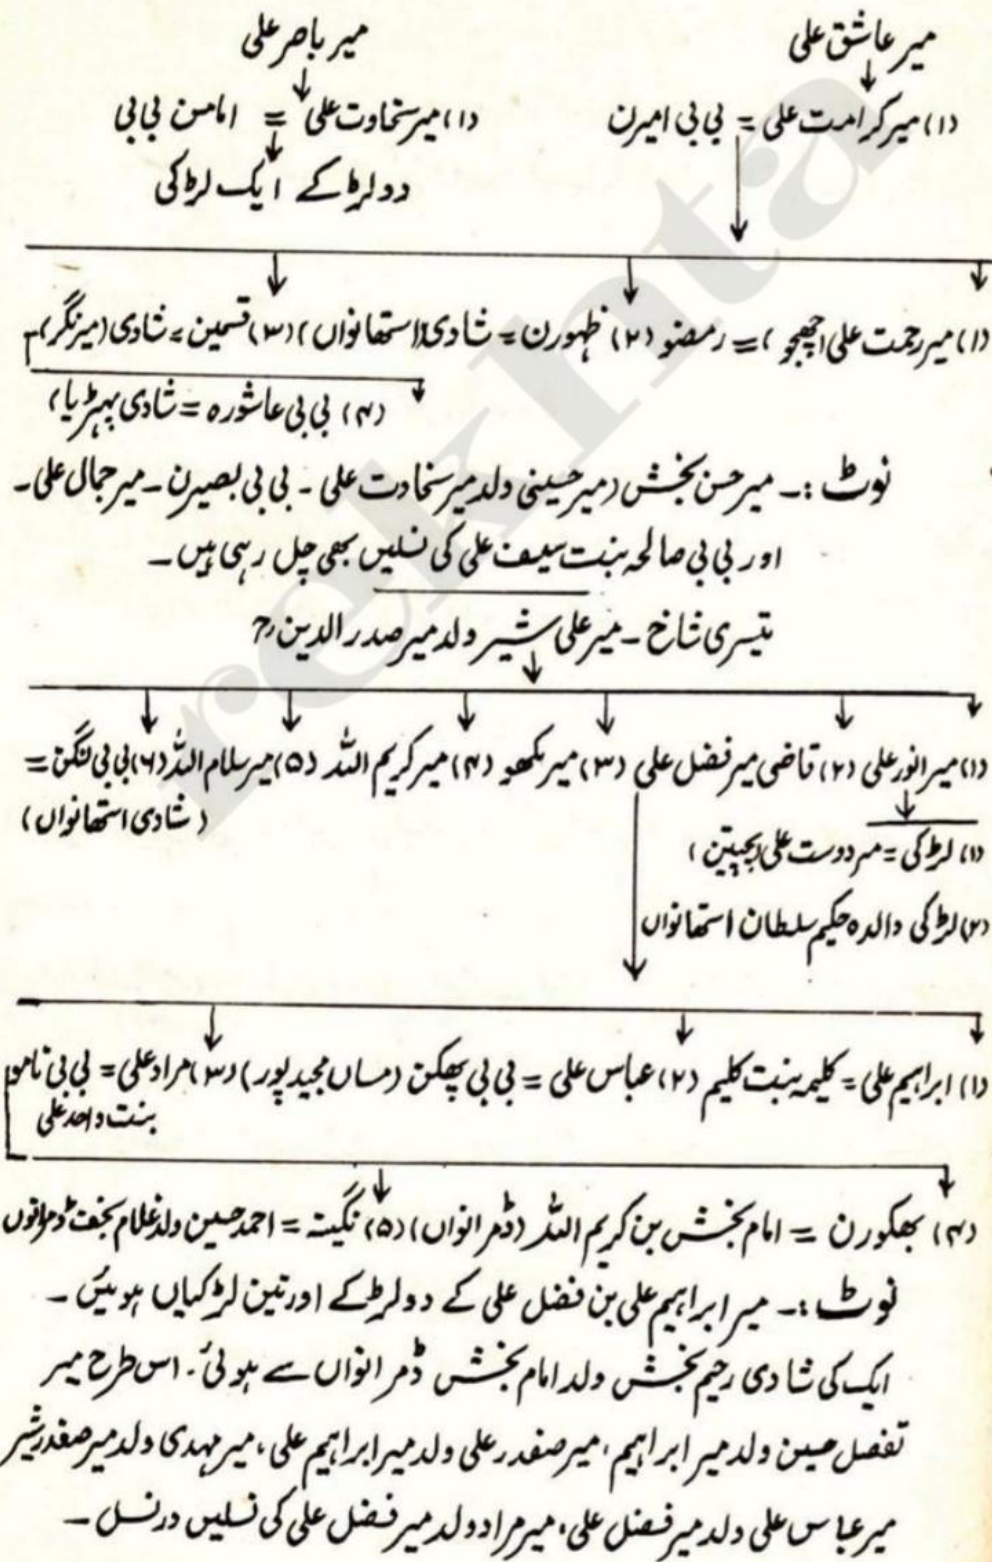 میر عاشق علی
میر باصر علی
(۱) میر کرامت علی = بی بی امیرن
(۱) میر سخاوت علی = امامن بی بی
دو لڑکے ایک لڑکی
(۱) میر رحمت علی (چھجو) = رمضنو (۲) ظہورن = شادی (استھانواں) (۳) قسمین = شادی (میرنگر)
(۴) بی بی عاشورہ = شادی پہڑیا)
نوٹ :۔ میر حسن بخش (میر حسینی ولد میر سخاوت علی ۔ بی بی بصیرن ۔ میر جمال علی ۔
اور بی بی صالحہ بنت سیف علی کی نسلیں بھی چل رہی ہیں ۔
تیسری شاخ ۔ میر علی شیر ولد میر صدر الدین
(۱) میر انور علی (۲) قاضی میر فضل علی (۳) میر مکھو (۴) میر کریم اللہ (۵) میر سلام اللہ (۶) بی بی لنگن =
(شادی استھانواں)
(۱) لڑکی = میر دوست علی
(۲) لڑکی والدہ حکیم سلطان استھانواں
(۱) ابراہیم علی = کلیمہ بنت کلیم (۲) عباس علی = بی بی پھکن (مساں مجید پور) (۳) مراد علی = بی بی نامو
بنت واحد علی
(۴) بھکورن = امام بخش بن کریم اللہ (ڈمرانواں) (۵) نگینہ = احمد حسین ولد غلام نجف ڈمرانواں
نوٹ :۔ میر ابراہیم علی بن فضل علی کے دو لڑکے اور تین لڑکیاں ہوئیں ۔
ایک کی شادی رحیم بخش ولد امام بخش ڈمرانواں سے ہوئی ۔ اس طرح میر
تفضل حسین ولد میر ابراہیم ، میر صفدر علی ولد میر ابراہیم علی ، میر مہدی ولد میر صفدر شیر
میر عباس علی ولد میر فضل علی ، میر مراد ولد میر فضل علی کی نسلیں در نسل ۔
rekhta